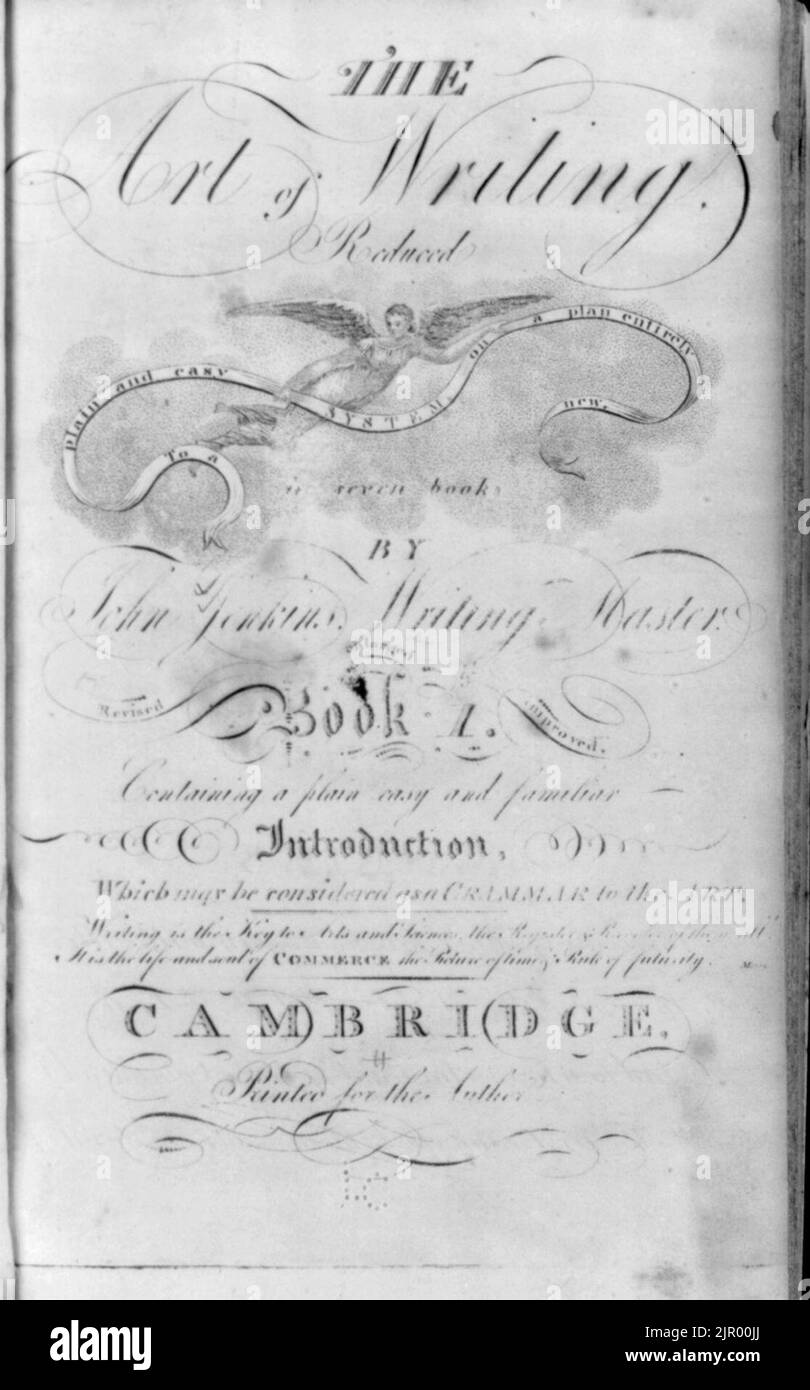 THE
Art of Writing.
Reduced
To a plain and easy SYSTEM, on a plan entirely new,
in seven books
BY
John Jenkins, Writing Master.
Revised
Book 1.
improved.
Containing a plain easy and familiar
Introduction,
Which may be considered as a GRAMMAR to the ART.
Writing is the Key to Arts and Sciences, the Register &
It is the life and soul of COMMERCE the Picture of time, & Rule of futurity.
CAMBRIDGE,
Printed for the Author
LC
alamy
alamy
Image ID: 2JR00JJ
www.alamy.com